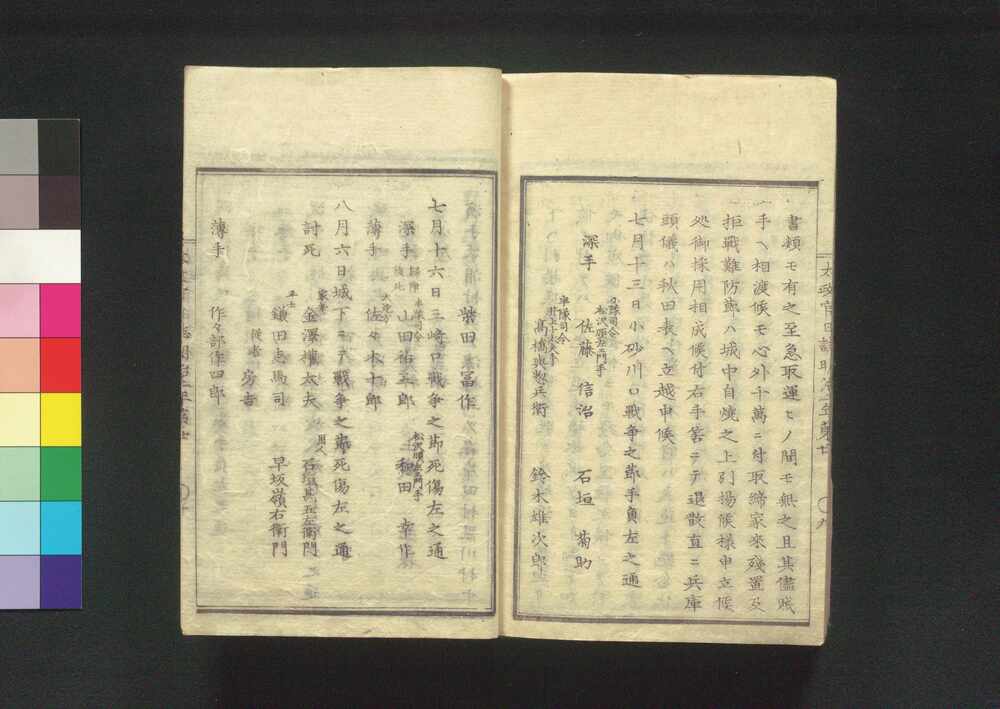 書類モ有之至急取運ヒノ間モ無之且其儘賊
手ヘ相渡候モ心外千萬ニ付取締家来殘置及
拒戰難防節ハ城中自燒之上引揚候樣申立候
処御採用相成候付右手筈ニテ退散直ニ兵庫
頭儀ハ秋田表ヘ立越申候
七月十三日小砂川口戰争之節手負左之通
深手 佐藤信治 石垣菊助
半隊司令
高橋與惣兵衛 鈴木雄次郎
柴田冨作
七月十六日三崎口戰争之節死傷左之通
深手 半隊司令 山田祐五郎 和田幸作
薄手 佐々木十郎
八月六日城下ニテ戰争之節死傷左之通
討死 家老 金澤權太夫 用人 石塚甚五左衛門
平士 鎌田志馬司 早坂嶺右衛門
従者 房吉
薄手 作々部作四郎